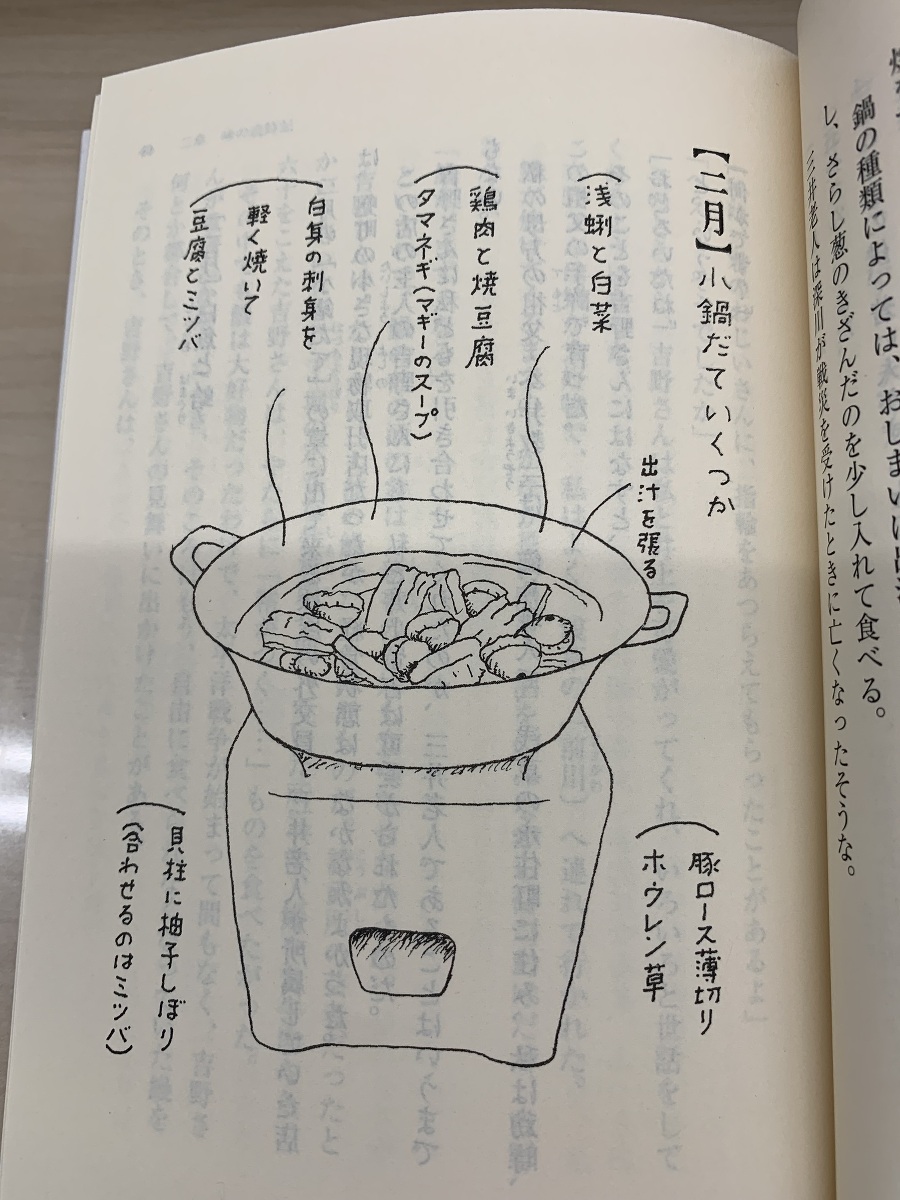 鍋の種類によっては、おしまいに出
し、さらし葱のきざんだのを少し入れて食べる。
三井老人は深川が戦災を受けたときに亡くなったそうな。
【二月】小鍋だていくつか
浅蜊と白菜
鶏肉と焼豆腐
タマネギ(マギーのスープ)
白身の刺身を
軽く焼いて
豆腐とミツバ
出汁を張る
豚ロース薄切り
ホウレン草
貝柱に柚子しぼり
(合わせるのはミツバ)